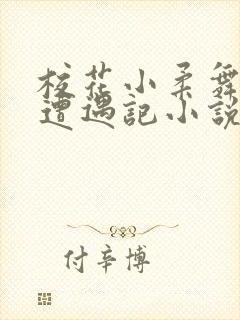 校花小柔舞
遭遇记小说
付辛博